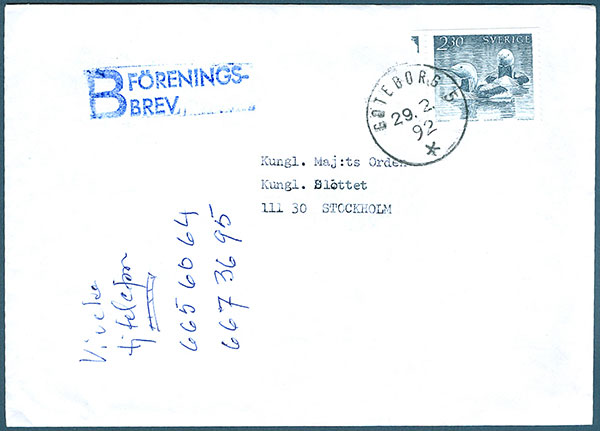 B FÖRENINGS-
BREV
2.30 SVERIGE
GÖTEBORG 5
29.2.
92
*
Kungl. Maj:ts Orden
Kungl. Slottet
111 30 STOCKHOLM
Viveka
tj telefon
665 60 64
667 36 95